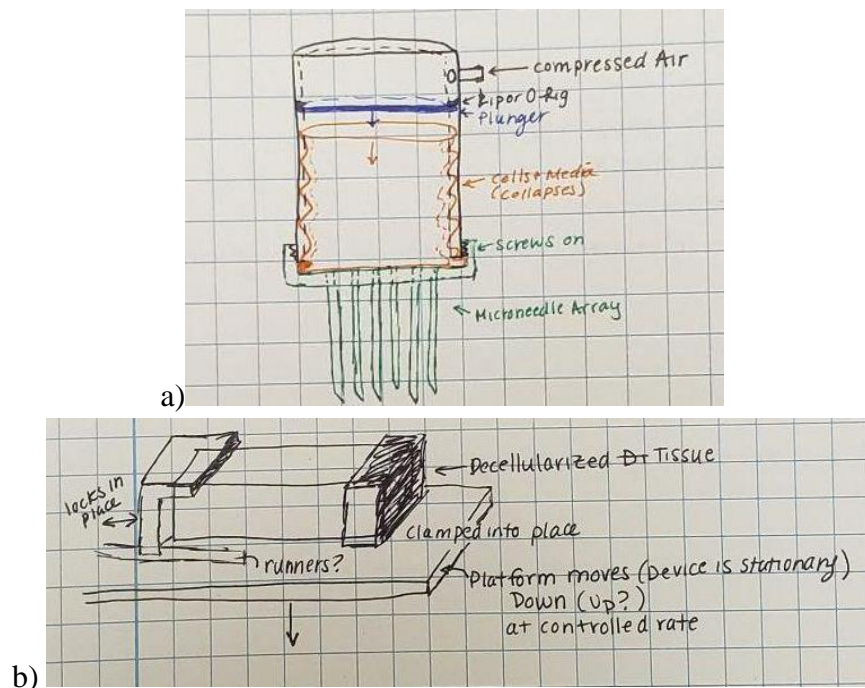 compressed Air
Lip or O-Rig
Plunger
Cells + Media
(collapses)
screws on
Microneedle Array
a)
Decellularized Tissue
locks in
place
clamped into place
runners?
Platform moves (Device is stationary)
Down (up?)
at controlled rate
b)